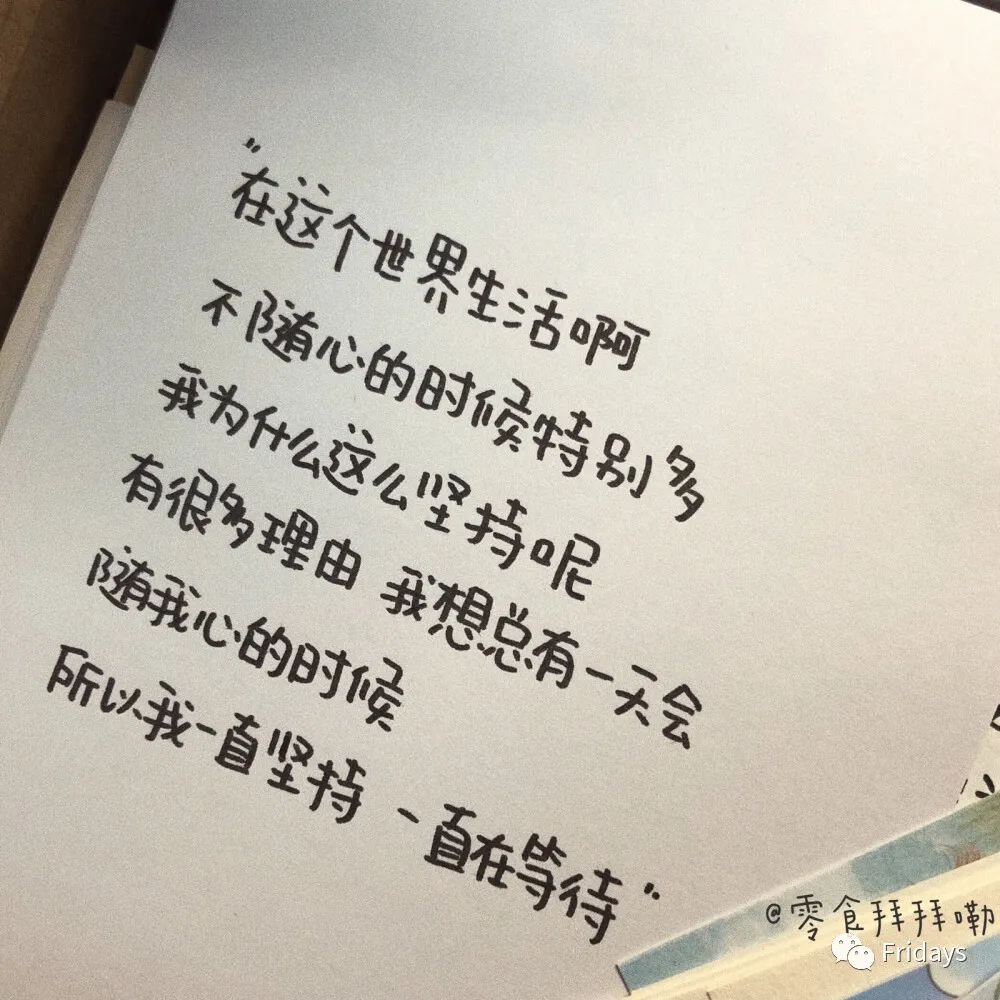 "在这个世界生活啊
不随心的时候特别多
我为什么这么坚持呢
有很多理由 我想总有一天会
随我心的时候
所以我一直坚持 一直在等待"
@零食拜拜嘞
Fridays